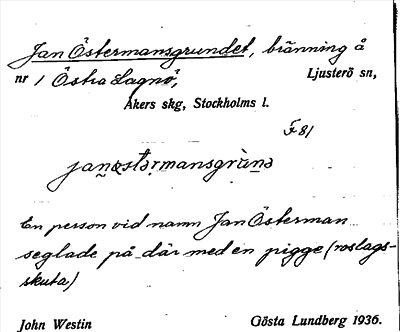 Jan Östermansgrundet, bränning å
nr 1 Östra Lagnö, Ljusterö sn,
Åkers skg, Stockholms l.
F 81
En person vid namn Jan Österman
seglade på där med en pigge (roslags-
skuta)
John Westin Gösta Lundberg 1936.